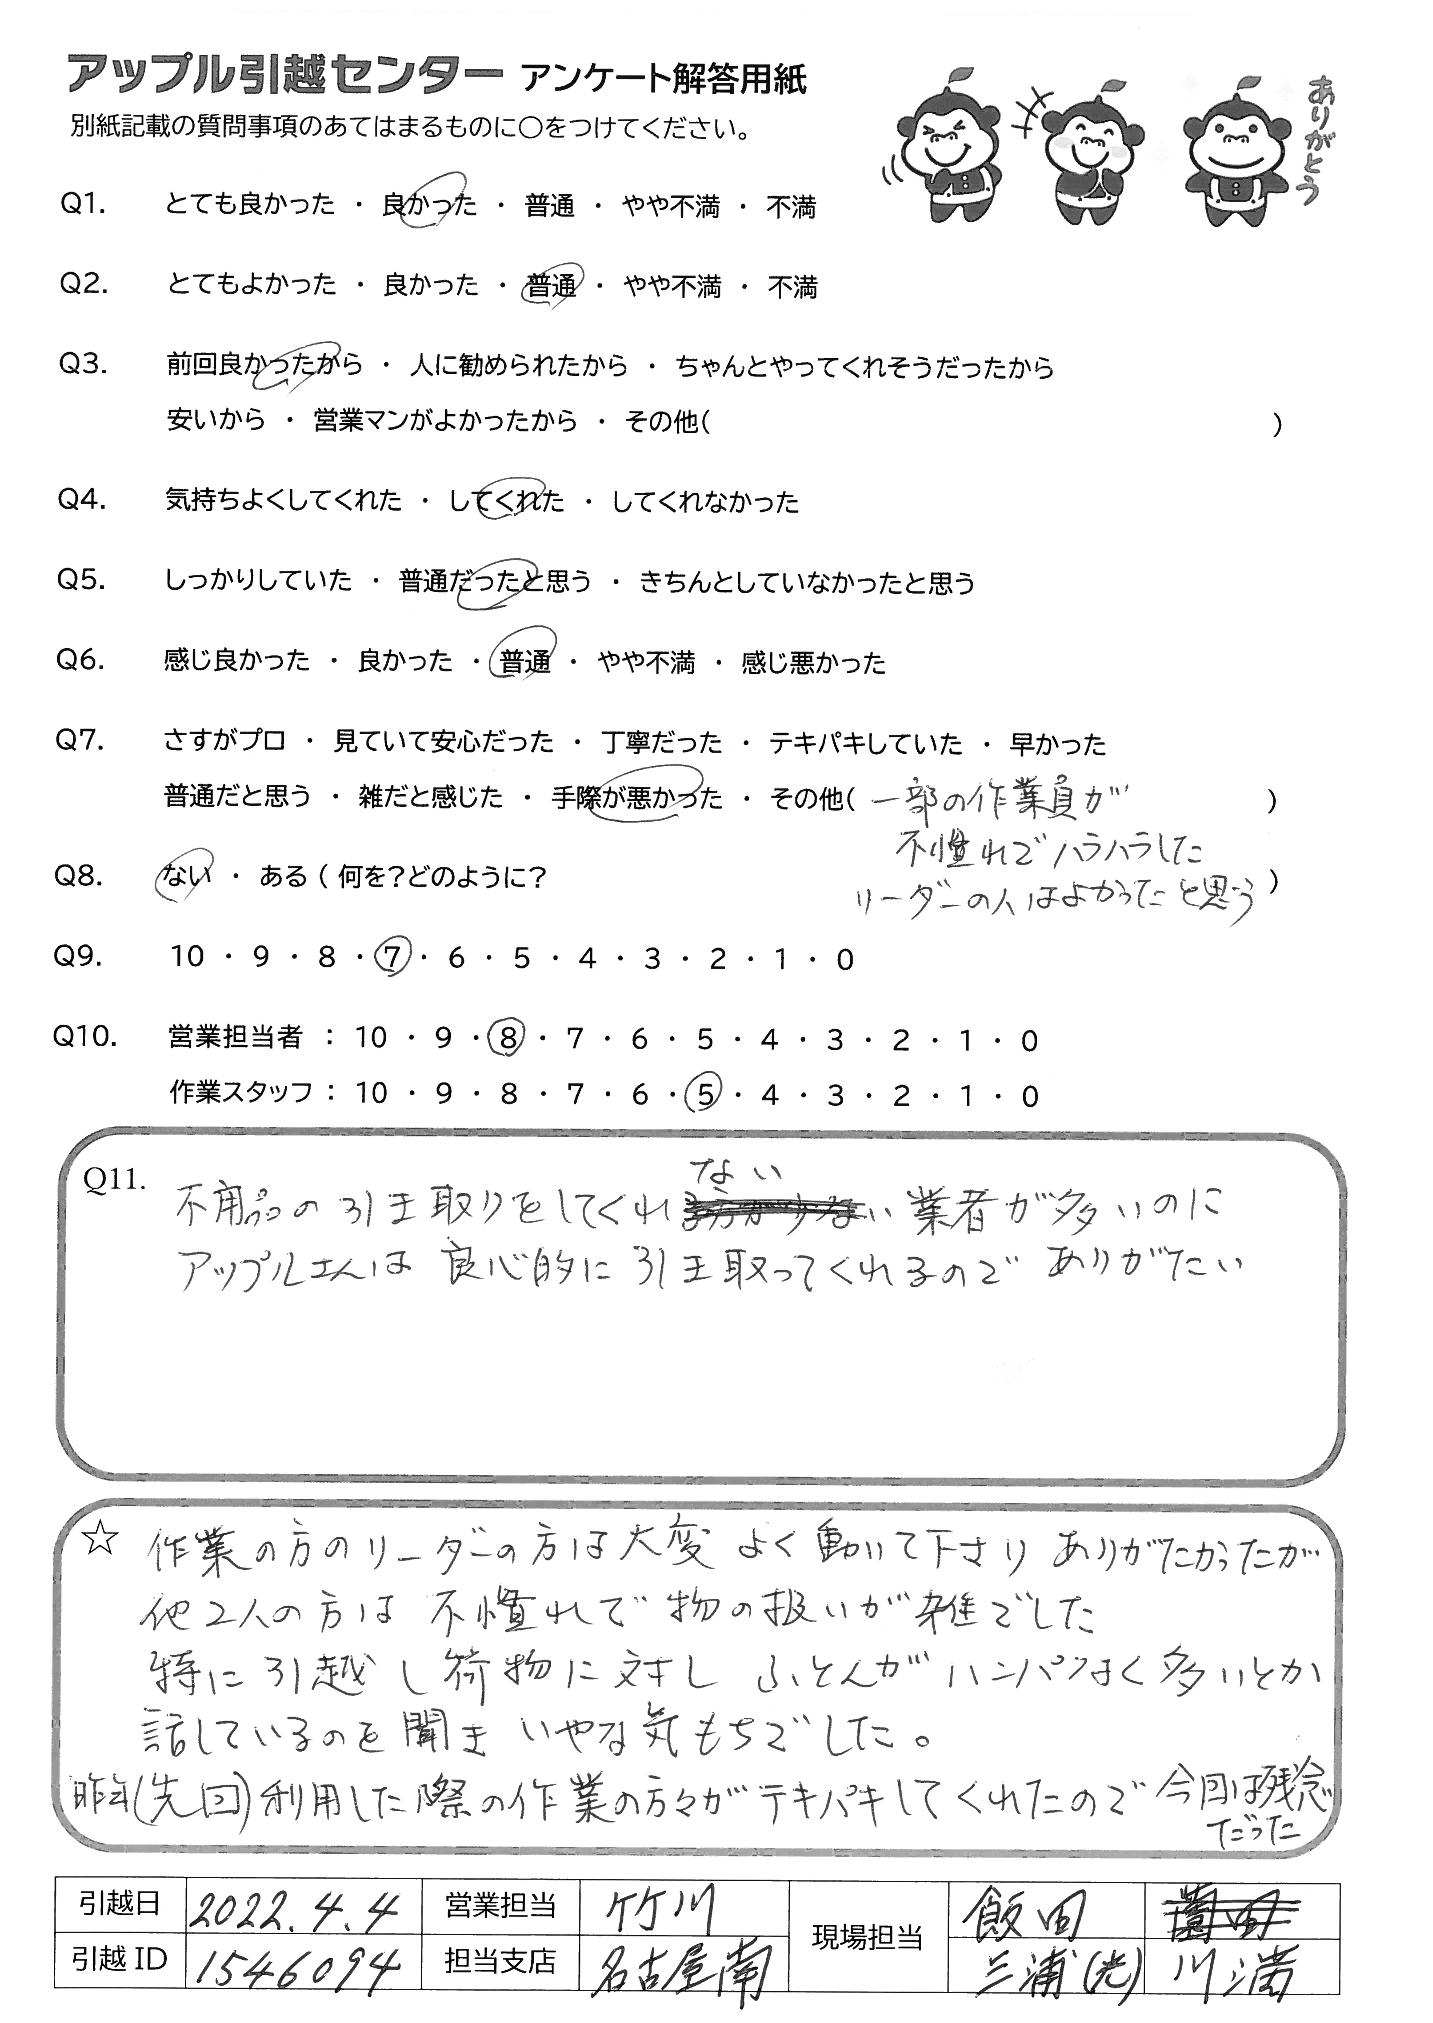 アップル引越センター アンケート解答用紙
別紙記載の質問事項のあてはまるものに○をつけてください。
ありがとう
Q1. とても良かった ・ 良かった ・ 普通 ・ やや不満 ・ 不満
Q2. とてもよかった ・ 良かった ・ 普通 ・ やや不満 ・ 不満
Q3. 前回良かったから ・ 人に勧められたから ・ ちゃんとやってくれそうだったから
安いから ・ 営業マンがよかったから ・ その他( )
Q4. 気持ちよくしてくれた ・ してくれた ・ してくれなかった
Q5. しっかりしていた ・ 普通だったと思う ・ きちんとしていなかったと思う
Q6. 感じ良かった ・ 良かった ・ 普通 ・ やや不満 ・ 感じ悪かった
Q7. さすがプロ ・ 見ていて安心だった ・ 丁寧だった ・ テキパキしていた ・ 早かった
普通だと思う ・ 雑だと感じた ・ 手際が悪かった ・ その他( 一部の作業員が )
不慣れでハラハラした
Q8. ない ・ ある ( 何を?どのように? )
リーダーの人はよかったと思う
Q9. 10 ・ 9 ・ 8 ・ 7 ・ 6 ・ 5 ・ 4 ・ 3 ・ 2 ・ 1 ・ 0
Q10. 営業担当者 : 10 ・ 9 ・ 8 ・ 7 ・ 6 ・ 5 ・ 4 ・ 3 ・ 2 ・ 1 ・ 0
作業スタッフ : 10 ・ 9 ・ 8 ・ 7 ・ 6 ・ 5 ・ 4 ・ 3 ・ 2 ・ 1 ・ 0
Q11.
不用品の引き取りをしてくれない業者が多いのに
アップルさんは良心的に引き取ってくれるのでありがたい
☆ 作業の方のリーダーの方は大変よく動いて下さりありがたかったが
他2人の方は不慣れで物の扱いが雑でした
特に引越し荷物に対しふとんがハンパなく多いとか
話しているのを聞きいやな気もちでした。
昨年(先回)利用した際の作業の方々がテキパキしてくれたので今回は残念
だった
引越日 2022.4.4 営業担当 竹川 現場担当 飯田
引越ID 1546094 担当支店 名古屋南 三浦(光) 川満